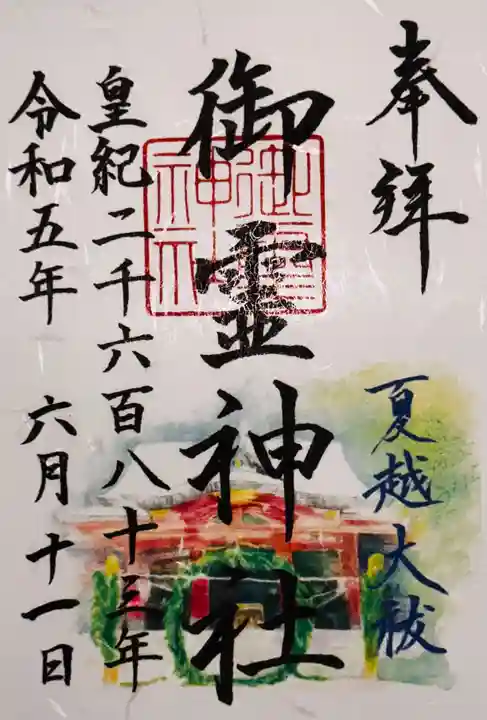 奉拝
夏越大祓
御霊神社
皇紀二千六百八十三年
令和五年 六月十一日